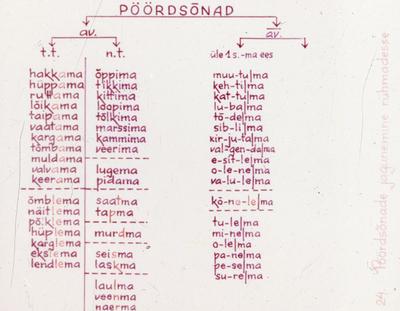 PÖÖRDSÕNAD
av. av.
t.t. n.t. üle 1 s.-ma ees
hakkama õppima muu-tu|ma
hüppama tikkima keh-ti|ma
ruttama kittima kat-tu|ma
lõikama loopima lu-ba|ma
taipama tõlkima tõ-de|ma
vaatama marssima sib-li|ma
kargama kammima kir-ju-ta|ma
tõmbama veerima val-gen-da|ma
muldama e-sit-le|ma
valvama lugema o-le-ne|ma
keerama pidama va-lu-le|ma
õmblema saatma kõ-ne-le|ma
näitlema tapma
põiklema tu-le|ma
hüplema murdma mi-ne|ma
karglema o-le|ma
ekslema seisma pa-ne|ma
lendlema laskma pe-se|ma
su-re|ma
laulma
veenma
naerma
24. Pöördsõnade jagunemine rühmadesse